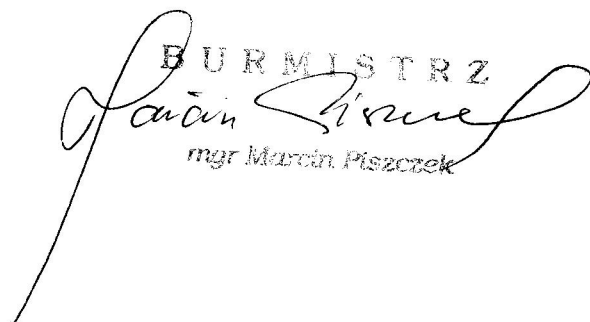 BURMISTRZ
Marcin Piszczek
mgr Marcin Piszczek